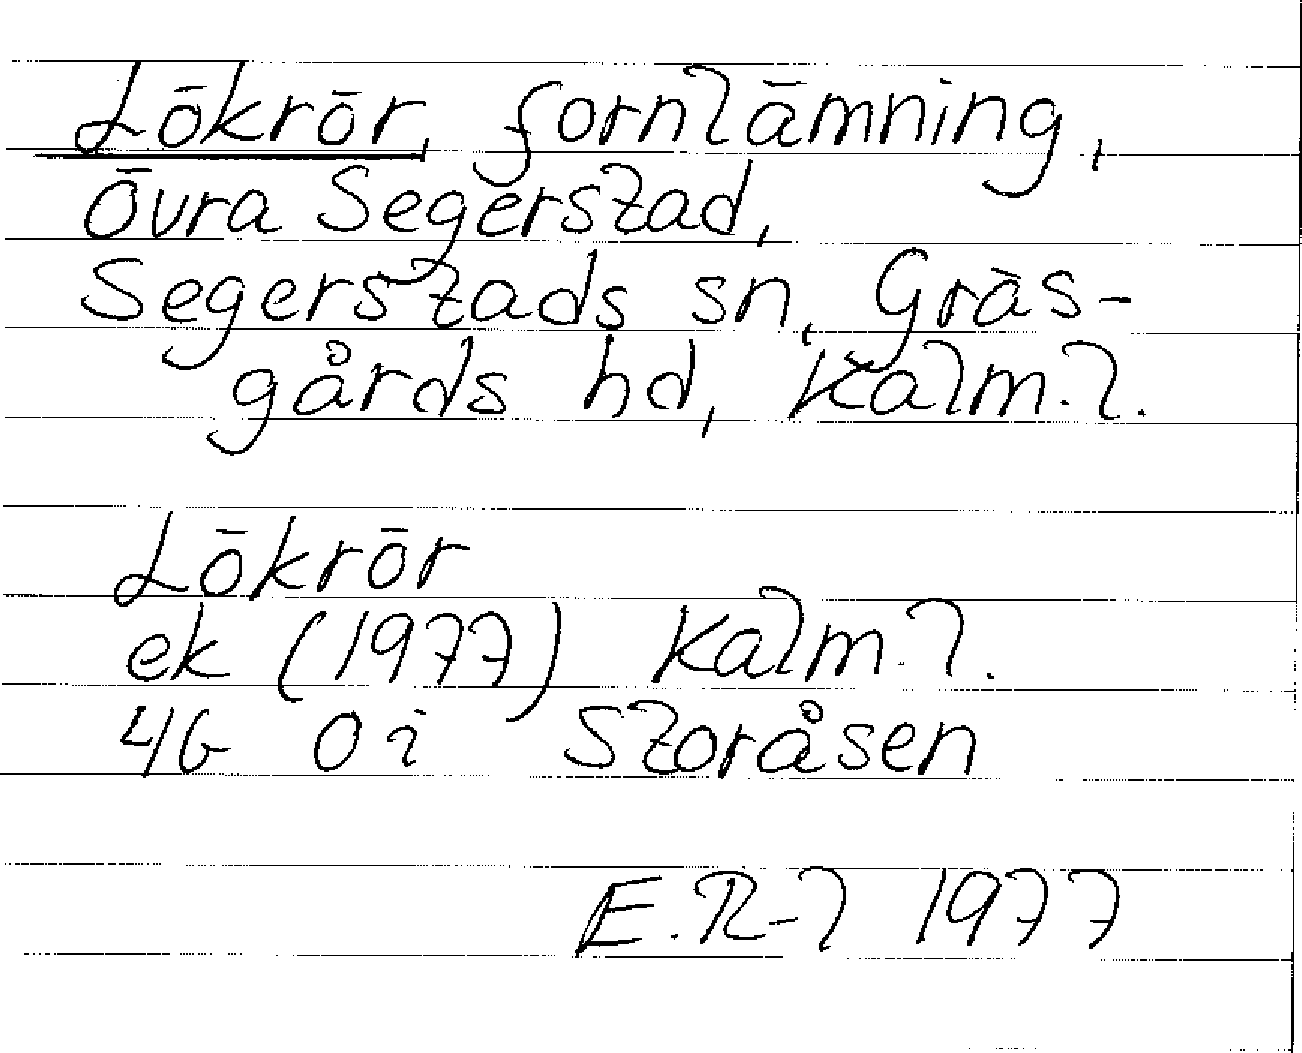 Lökrör, fornlämning,
Övra Segerstad,
Segerstads sn, Gräs-
gårds hd, Kalm. l.
Lökrör
ek (1977) Kalm. l.
4G 0i Storåsen
E.R-l 1977